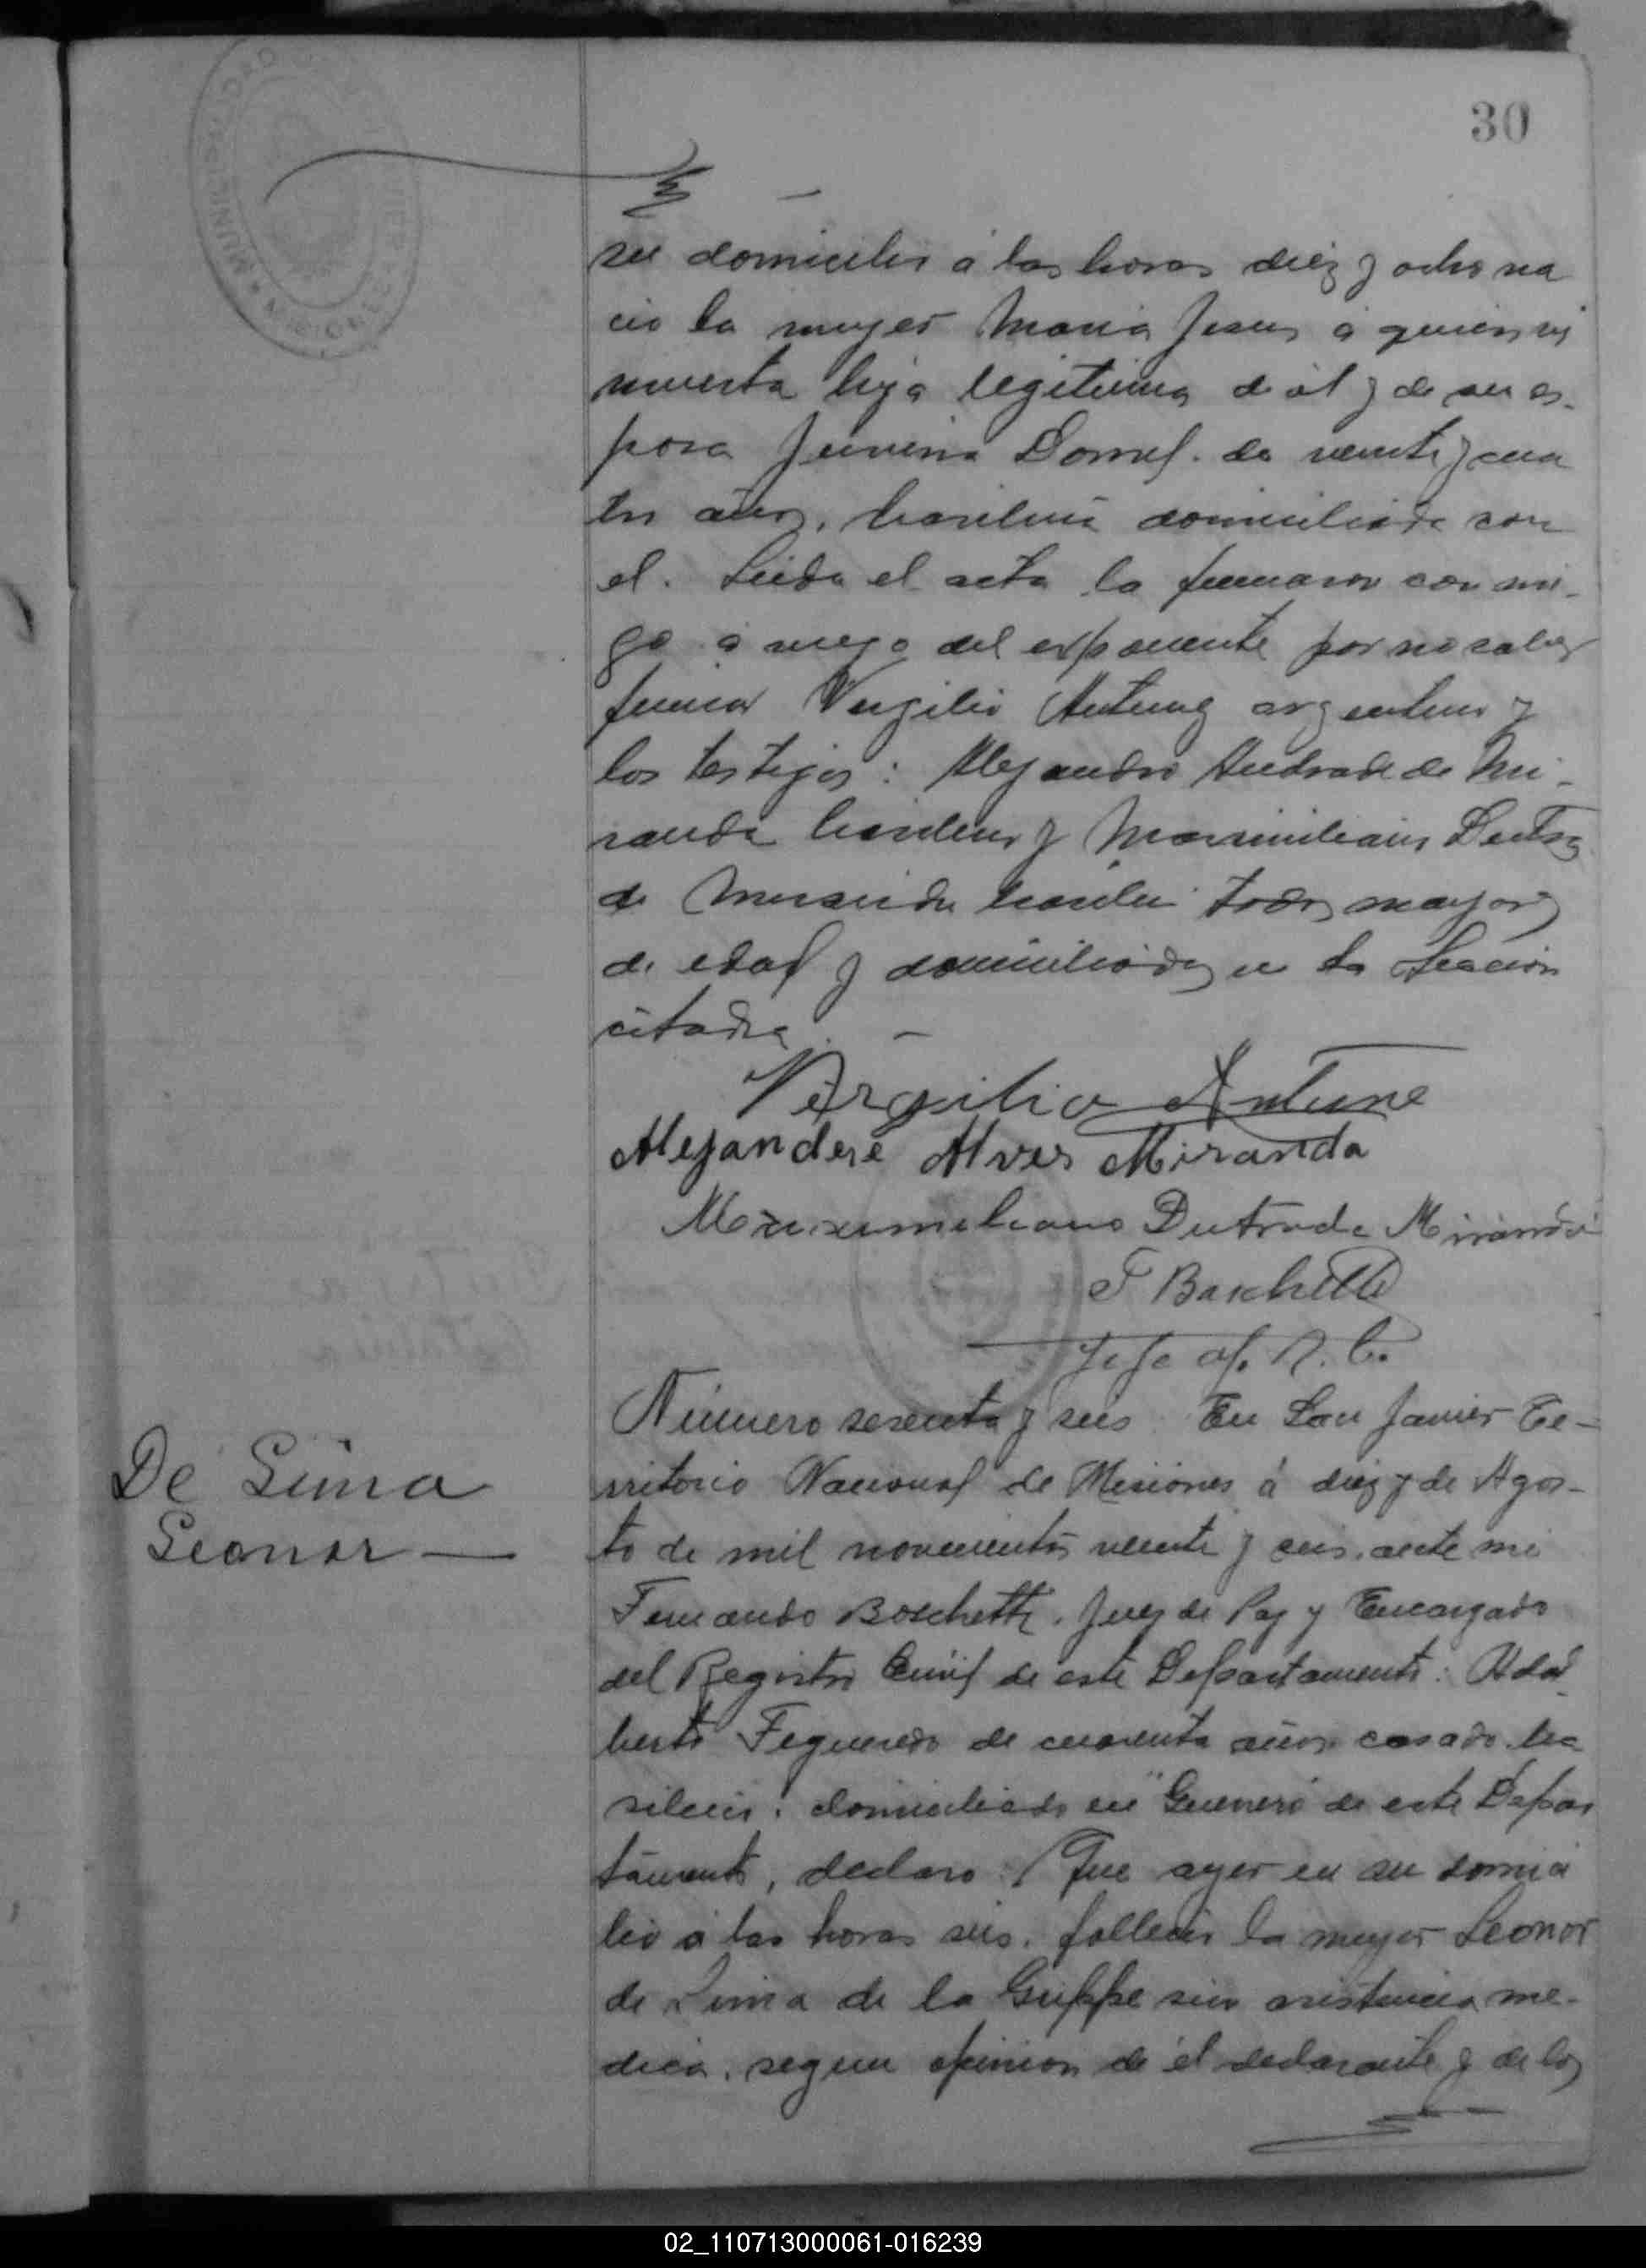 30
su domicilio á las horas diez y ocho na
cio la mujer Maria Jesus á quien vi
muerta hija legitima de él y de su es-
posa Juvina Dornel. de veinte y cua
tro años, brasilera domiciliada con
el. Leida el acta la firmaron con mi-
go á ruego del exponente por no saber
firmar Virgilio Antunez argentino y
los testigos: Alejandro Andrade de Mi-
randa brasilero y Maximiliano Dutra
de Miranda brasilero todos mayores
de edad y domiciliados en la Sección
citada. —
Virgilio Antune
Alejandere Alves Miranda
Maxiximiliano Dutra de Miranda
F Boschetti
Jefe of. R. C.
De Lima
Leonor —
Número sesenta y seis. En San Javier Te-
rritorio Nacional de Misiones á diez y de Agos-
to de mil novecientos veinte y seis, ante mi
Fernando Boschetti, Juez de Paz y Encargado
del Registro Civil de este Departamento: Adal
berto Figueredo de cuarenta años casado bra
silero, domiciliado en "Guerrero" de este Depar
tamento, declaro: Que ayer en su domici
lio á las horas seis, falleció la mujer Leonor
de Lima de la Grippe sin asistencia me-
dica, segun opinion de él declarante y de los
MUNICIPALIDAD
MISIONES
02_110713000061-016239